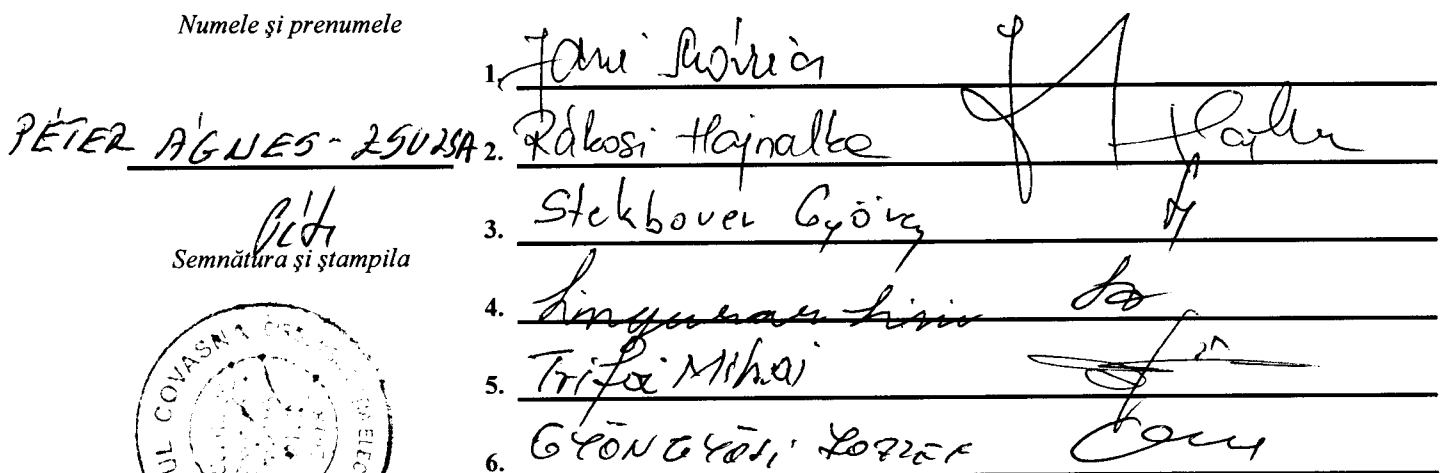 Numele și prenumele
PÉTER ÁGNES-ZSUZSA
Semnătura și ștampila
UL COVASNA
ELEC
1. Jani
2. Rákosi Hajnalka
3. Stekbauer György
4. Lingurar Liviu
5. Trifa Mihai
6. GYÖNGYÖSI JOZZEF